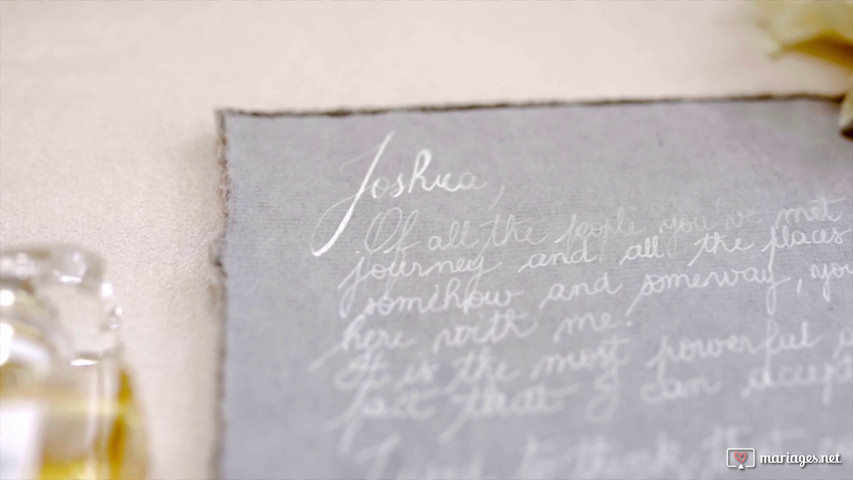 Joshua,
Of all the people you've met
journey and all the places
somehow and someway, you
here with me.
It is the most powerful
that I can accept
to think that
mariages.net